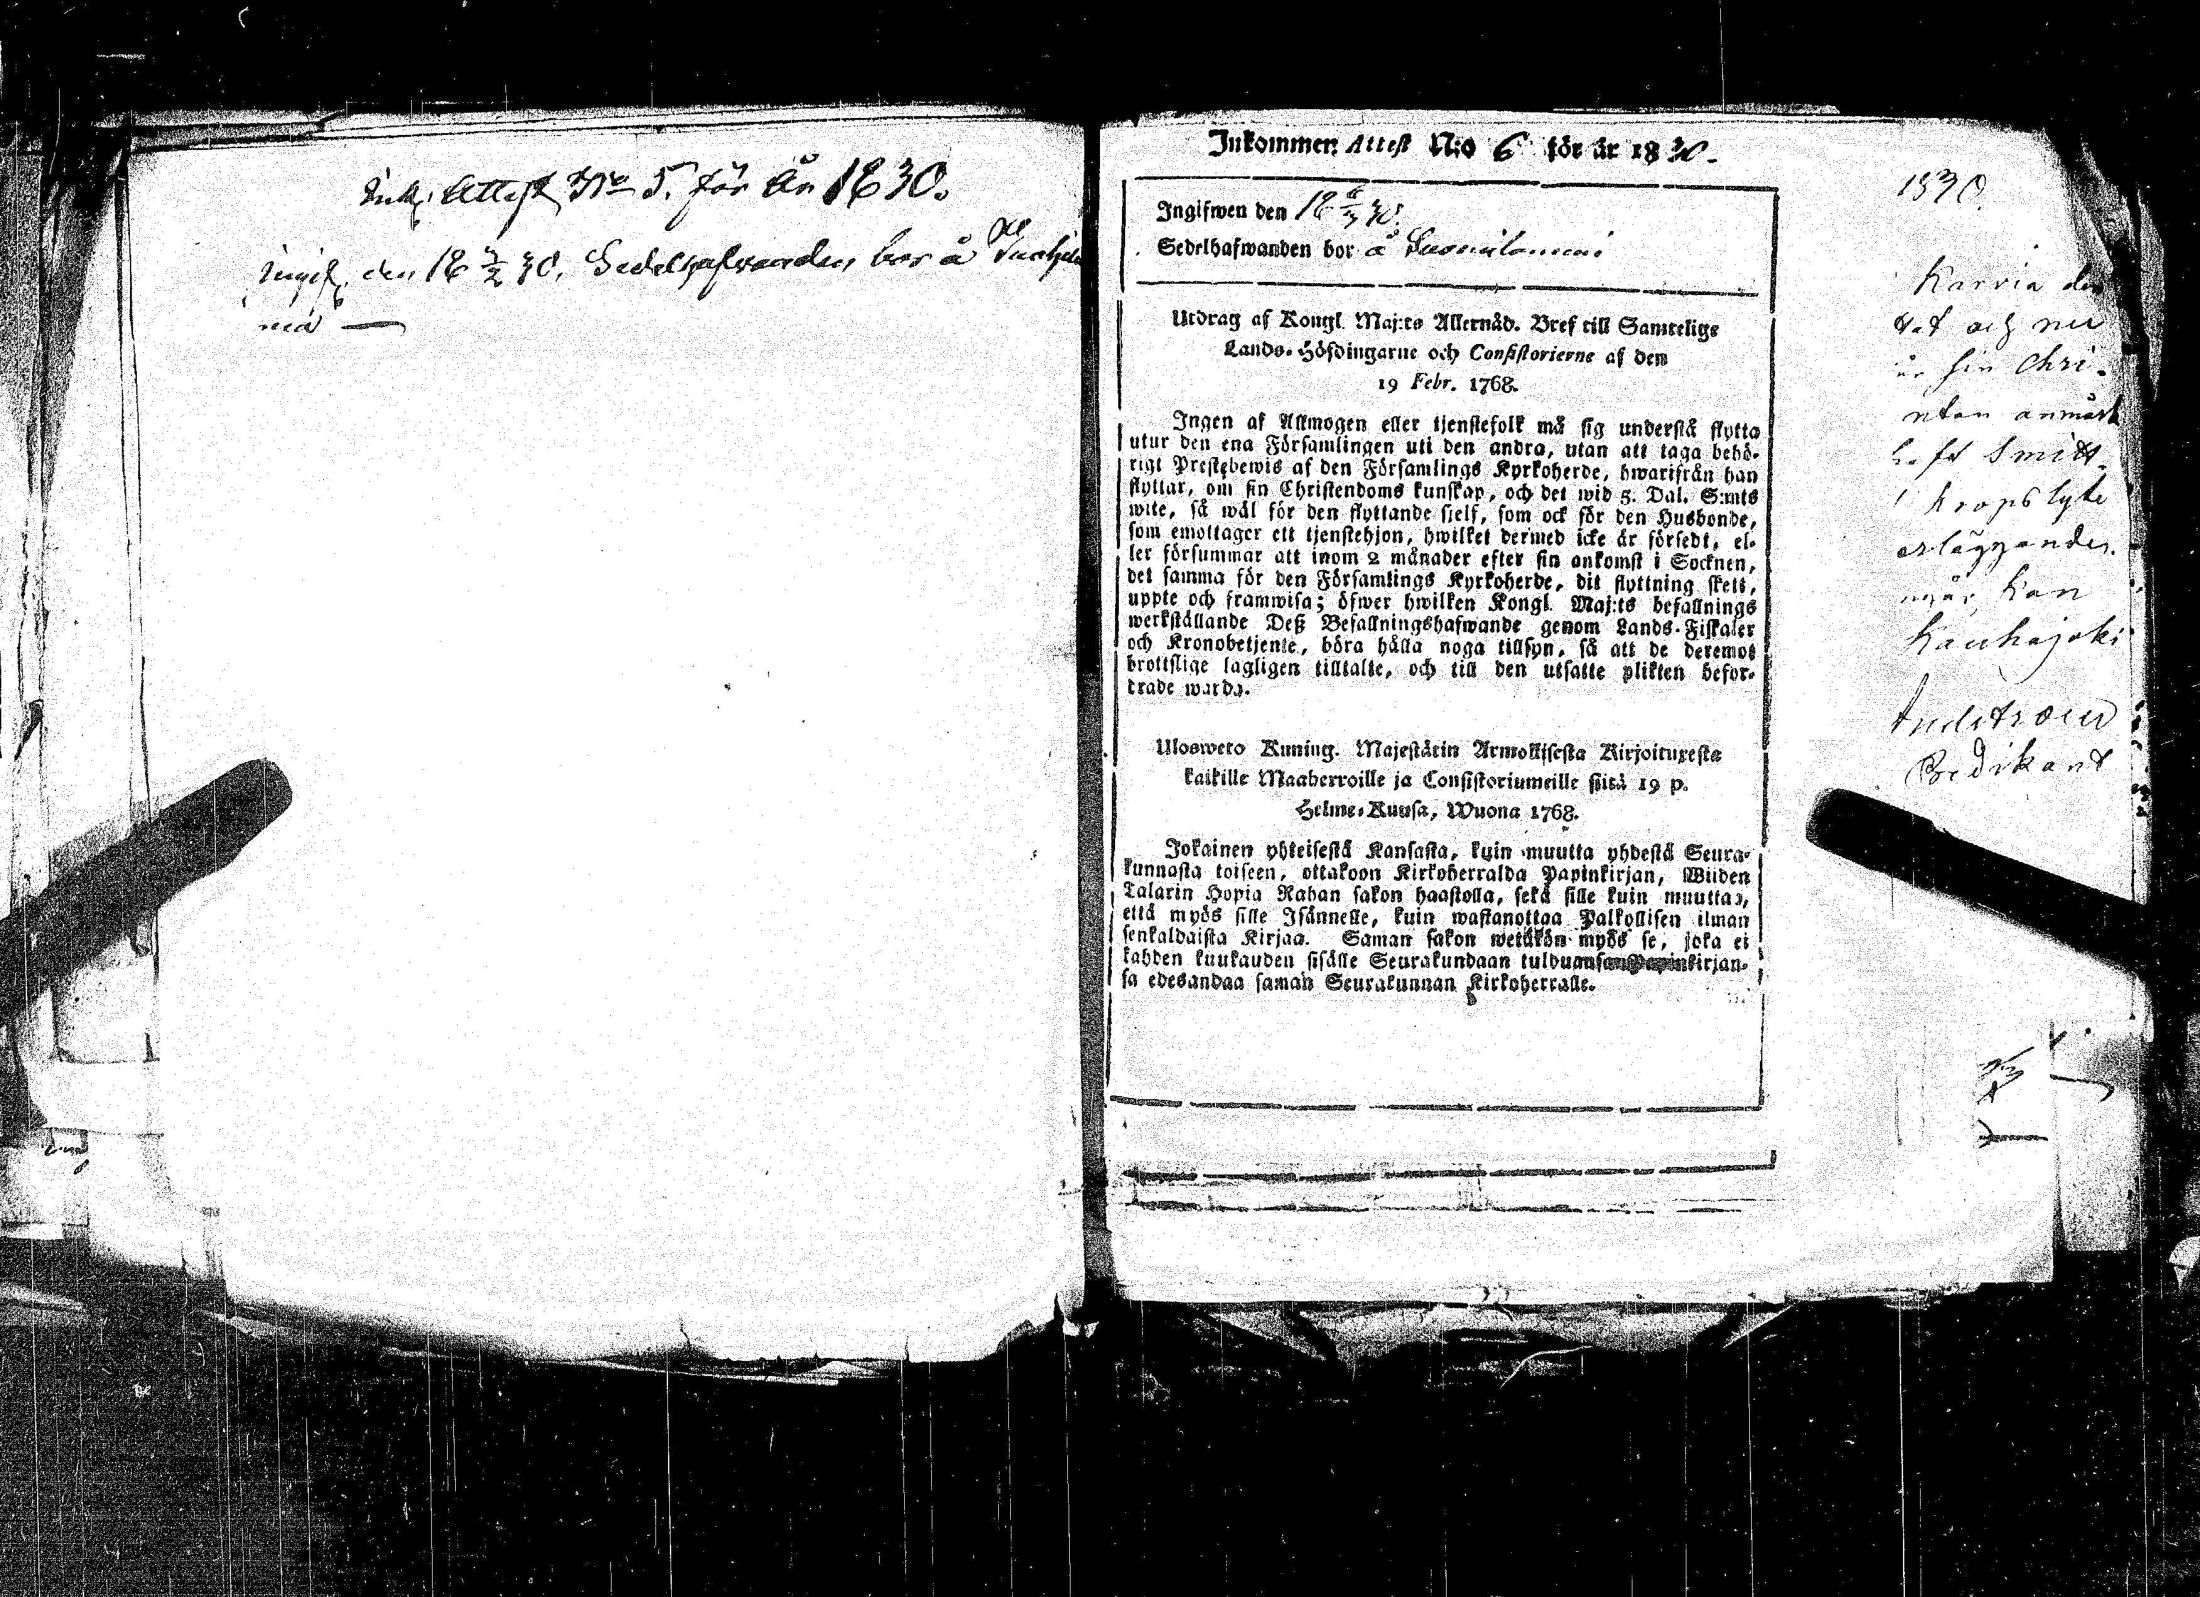 Ink. Attest No 5. för År 1830.
Ingif. den 18 5/2 30. Sedelhafwanden bor å
Inkommen Attest N:o 6 för år 1830.
Ingifwen den 18 6/3 30.
Sedelhafwanden bor å
Utdrag af Kongl. Maj:ts Allernåd. Bref till Samtelige
Lands-Höfdingarne och Consistorierne af den
19 Febr. 1768.
Ingen af Allmogen eller tjenstefolk må sig understå flytta
utur den ena Församlingen uti den andra, utan att taga behö-
rigt Prestebewis af den Församlings Kyrkoherde, hwarifrån han
flyttar, om sin Christendoms kunskap, och det wid 5. Dal. S:mts
wite, så wäl för den flyttande sjelf, som ock för den Husbonde,
som emottager ett tjenstehjon, hwilket dermed icke är försedt, el-
ler försummar att inom 2 månader efter sin ankomst i Socknen,
det samma för den Församlings Kyrkoherde, dit flyttning skett,
uppte och framwisa; öfwer hwilken Kongl. Maj:ts befallnings
werkställande Deß Befallningshafwande genom Lands-Fiskaler
och Kronobetjente, böra hålla noga tillsyn, så att de deremot
brottslige lagligen tilltalte, och till den utsatte plikten befor-
drade warda.
Ulosweto Kuning. Majestätin Armollisesta Kirjoituxesta
kaikille Maaherroille ja Consistoriumeille siitä 19 p.
Helme-Kuusa, Wuona 1768.
Jokainen yhteisestä Kansasta, kuin muutta yhdestä Seura-
kunnasta toiseen, ottakoon Kirkoherralda Papinkirjan, Wiiden
Talarin Hopia Rahan sakon haastolla, sekä sille kuin muuttaa,
että myös sille Isännelle, kuin wastanottaa Palkollisen ilman
senkaldaista Kirjaa. Saman sakon wetäkön myös se, joka ei
kahden kuukauden sisälle Seurakundaan tulduansa Papinkirjan-
sa edesandaa saman Seurakunnan Kirkoherralle.
1830.
Karvia den
tat och nu
är sin Chri-
utan anmärk
haft Smitt-
Kropslyte
erläggandes.
Kan
Kauhajoki
Predikant